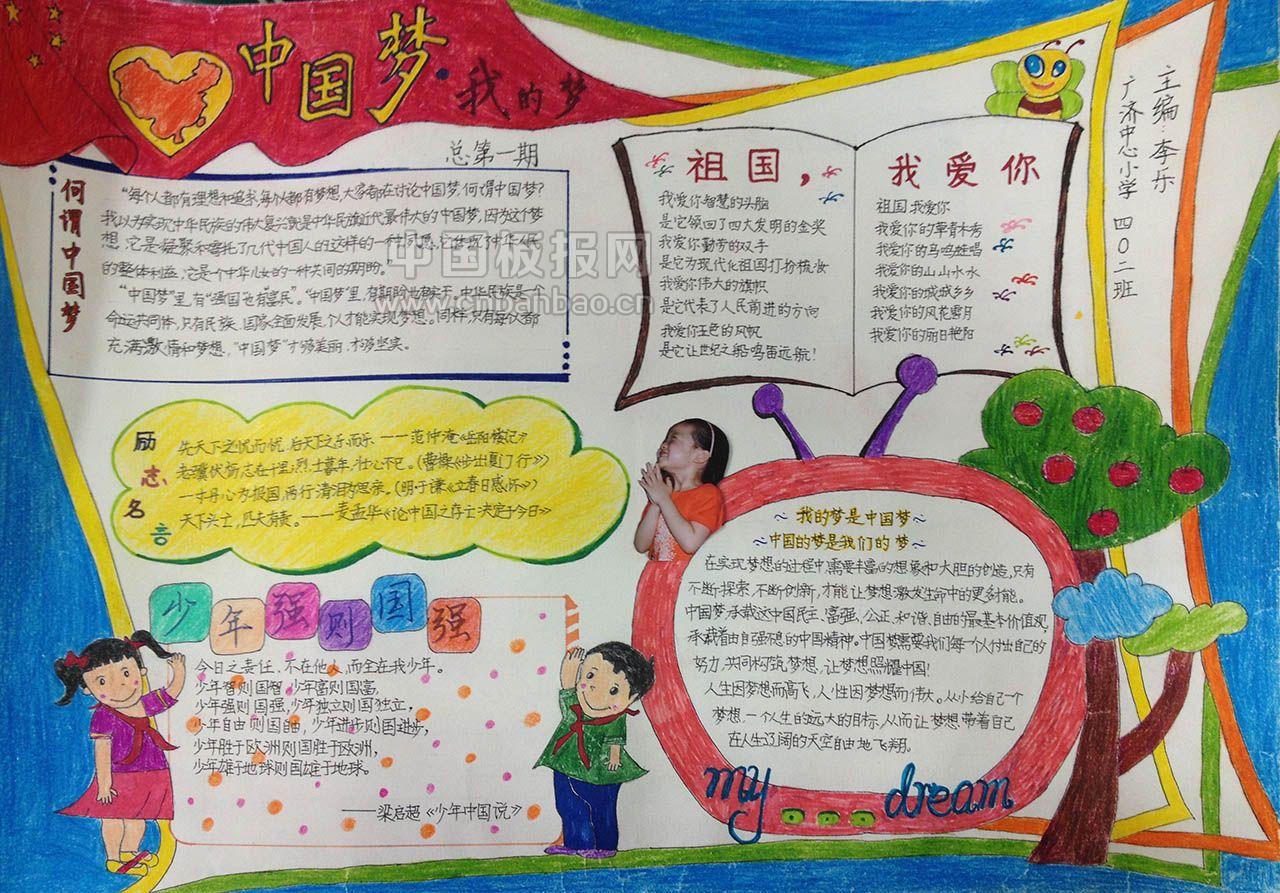 中国梦·我的梦
总第一期
主编：李乐
广济中心小学 四0二班
何谓中国梦
"每个人都有理想和追求，每个人都有梦想，大家都在讨论中国梦，何谓中国梦？
我以为实现中华民族的伟大复兴就是中华民族近代最伟大的中国梦，因为这个梦
想，它是凝聚和寄托了几代中国人的这样的一种夙愿，它体现了中华人民
的整体利益，它是个中华儿女的一种共同的期盼。"
"中国梦"里，有"强国"也有"富民"。"中国梦"里，有期盼也有实干，中华民族是一个
命运共同体，只有民族、国家全面发展，个人才能实现梦想。同样，只有每个人都
充满激情和梦想，"中国梦"才够美丽，才够坚实。
中国板报网
www.cnbanbao.cn
祖国，我爱你
我爱你智慧的头脑
是它领回了四大发明的金奖
我爱你勤劳的双手
是它为现代化祖国打扮梳妆
我爱你伟大的旗帜
是它代表了人民前进的方向
我爱你五色的风帆
是它让世纪之船鸣笛远航！
祖国，我爱你
我爱你的草青木秀
我爱你的鸟鸣蛙唱
我爱你的山山水水
我爱你的城城乡乡
我爱你的风花雪月
我爱你的丽日艳阳
励志名言
先天下之忧而忧，后天下之乐而乐——范仲淹《岳阳楼记》
老骥伏枥，志在千里；烈士暮年，壮心不已。（曹操《步出夏门行》）
一寸丹心为报国，两行清泪为思亲。（明·于谦《立春日感怀》）
天下兴亡，匹夫有责。——麦孟华《论中国之存亡决定于今日》
少年强则国强
今日之责任，不在他人，而全在我少年。
少年智则国智，少年富则国富，
少年强则国强，少年独立则国独立，
少年自由则国自由，少年进步则国进步，
少年胜于欧洲则国胜于欧洲，
少年雄于地球则国雄于地球。
——梁启超《少年中国说》
~我的梦是中国梦~
~中国的梦是我们的梦~
在实现梦想的过程中需要丰富的想象和大胆的创造，只有
不断探索，不断创新，才能让梦想激发生命中的更多可能。
中国梦承载这中国民主、富强、公正、和谐、自由的最基本价值观，
承载着由自强不息的中国精神。中国梦需要我们每一个人付出自己的
努力，共同构筑梦想，让梦想照耀中国！
人生因梦想而高飞，人性因梦想而伟大。从小给自己一个
梦想，一个人生的远大的目标，从而让梦想带着自己
在人生辽阔的天空自由地飞翔。
my dream